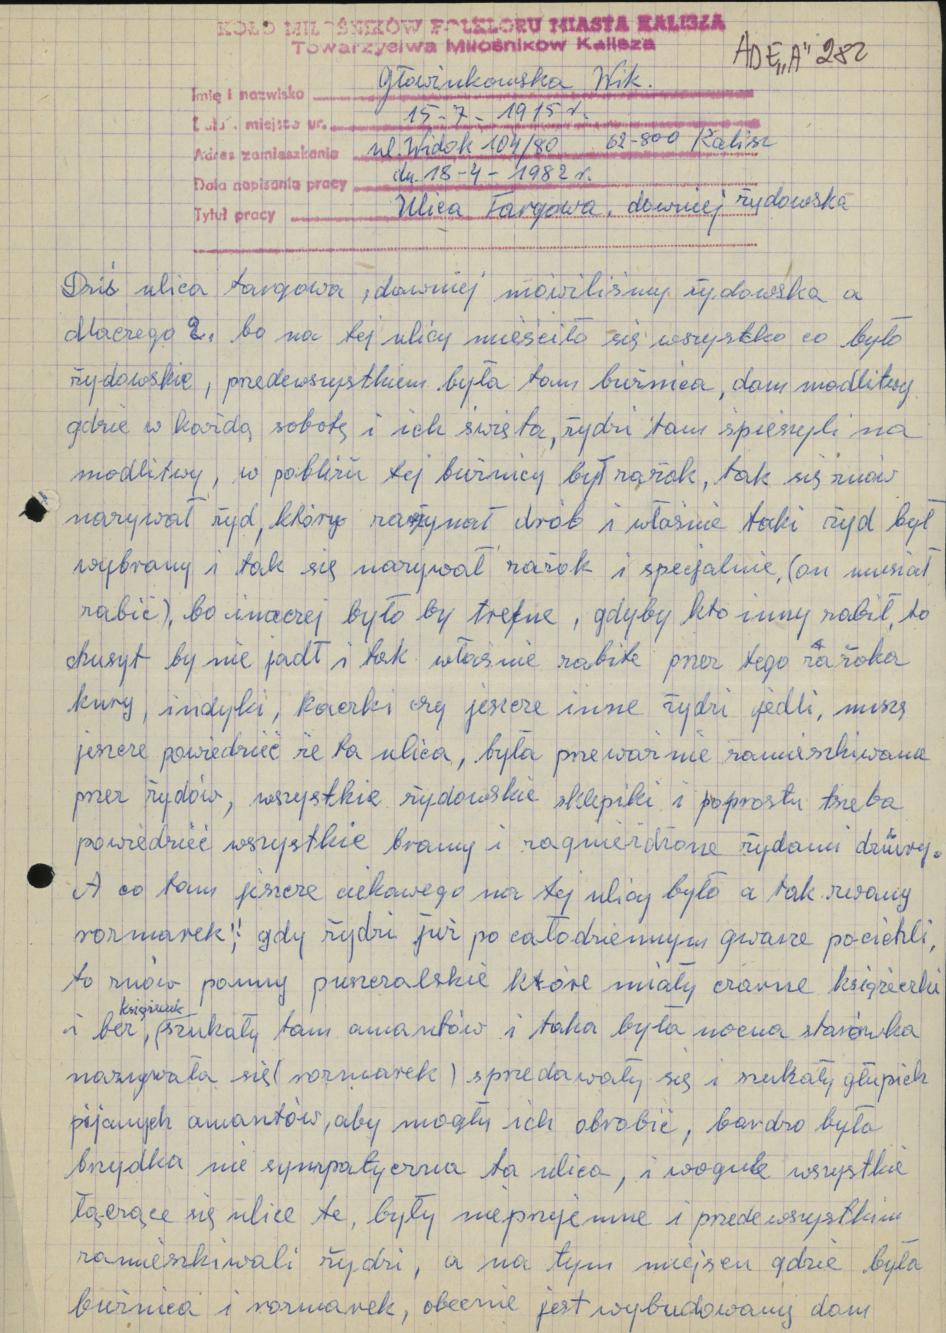 KOŁO MIŁOŚNIKÓW FOLKLORU MIASTA KALISZA
Towarzystwa Miłośników Kalisza
ADE „A" 282
Imię i nazwisko Głowinkowska Wik.
Data, miejsce ur. 15-7-1915 r.
Adres zamieszkania ul. Widok 104/80 62-800 Kalisz
Data napisania pracy dn. 18-4-1982 r.
Tytuł pracy Ulica Targowa, dawniej żydowska
Dziś ulica targowa, dawniej mówiliśmy żydowska a
dlaczego?. bo na tej ulicy mieściło się wszystko co było
żydowskie, przedewszystkiem była tam buźnica, dom modlitwy
gdzie w każdą sobotę i ich święta, żydzi tam śpieszyli na
modlitwy, w pobliżu tej buźnicy był rzazak, tak się znów
nazywał żyd, który zarzynał drób i właśnie taki żyd był
wybrany i tak się nazywał rzazak i specjalnie, (on musiał
zabić), bo inaczej było by trefne, gdyby kto inny zabił, to
chusyt by nie jadł i tak właśnie zabite przez tego rzazaka
kury, indyki, kaczki czy jeszcze inne żydzi jedli, muszę
jeszcze powiedzieć że ta ulica, była przeważnie zamieszkiwana
przez żydów, wszystkie żydowskie sklepiki i poprostu trzeba
powiedzieć wszystkie bramy i zagnieżdżone żydami dziury.
A co tam jeszcze ciekawego na tej ulicy było a tak zwany
rozmarek"! gdy żydzi już po całodziennym gwarze pocichli,
to znów panny puszczalskie które miały czarne książeczki
i bez książek, szukały tam amantów i taka była nocna starówka
nazywała się (rozmarek) sprzedawały się i szukały głupich
pijanych amantów, aby mogły ich obrobić, bardzo była
brzydka nie sympatyczna ta ulica, i wogule wszystkie
łączące się ulice te, były nieprzyjemne i przedewszystkim
zamieszkiwali żydzi, a na tym miejscu gdzie była
buźnica i rozmarek, obecnie jest wybudowany dom